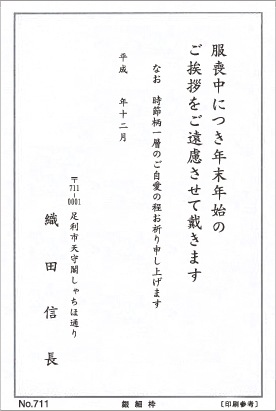 服喪中につき年末年始の
ご挨拶をご遠慮させて戴きます
なお 時節柄一層のご自愛の程お祈り申し上げます
平成 年十二月
〒711-0001 足利市天守閣しゃちほ通り
織田信長
No.711 銀細枠 〔印刷参考〕